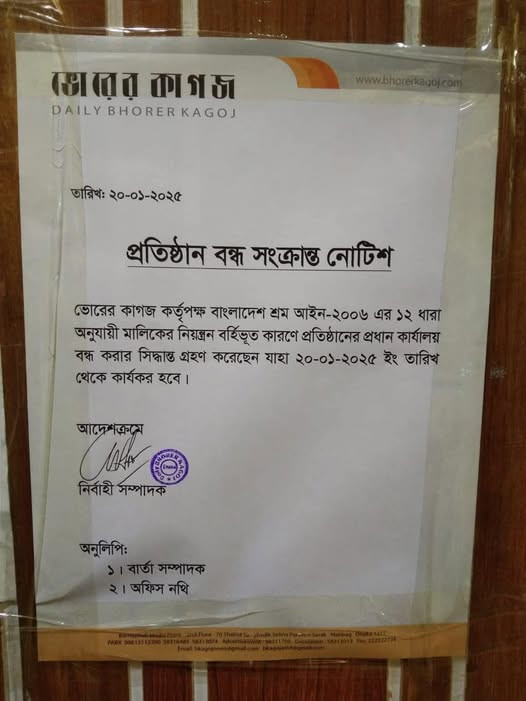 ভোরের কাগজ
DAILY BHORER KAGOJ
www.bhorerkagoj.com
তারিখ: ২০-০১-২০২৫
প্রতিষ্ঠান বন্ধ সংক্রান্ত নোটিশ
ভোরের কাগজ কর্তৃপক্ষ বাংলাদেশ শ্রম আইন-২০০৬ এর ১২ ধারা
অনুযায়ী মালিকের নিয়ন্ত্রন বর্হিভূত কারণে প্রতিষ্ঠানের প্রধান কার্যালয়
বন্ধ করার সিদ্ধান্ত গ্রহণ করেছেন যাহা ২০-০১-২০২৫ ইং তারিখ
থেকে কার্যকর হবে।
আদেশক্রমে
নির্বাহী সম্পাদক
অনুলিপি:
১। বার্তা সম্পাদক
২। অফিস নথি